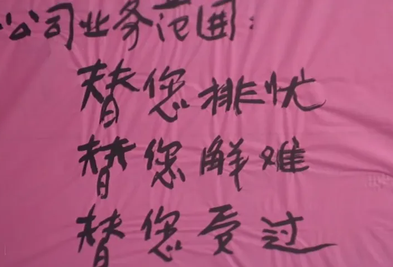 公司业务范围:
替您排忧
替您解难
替您受过